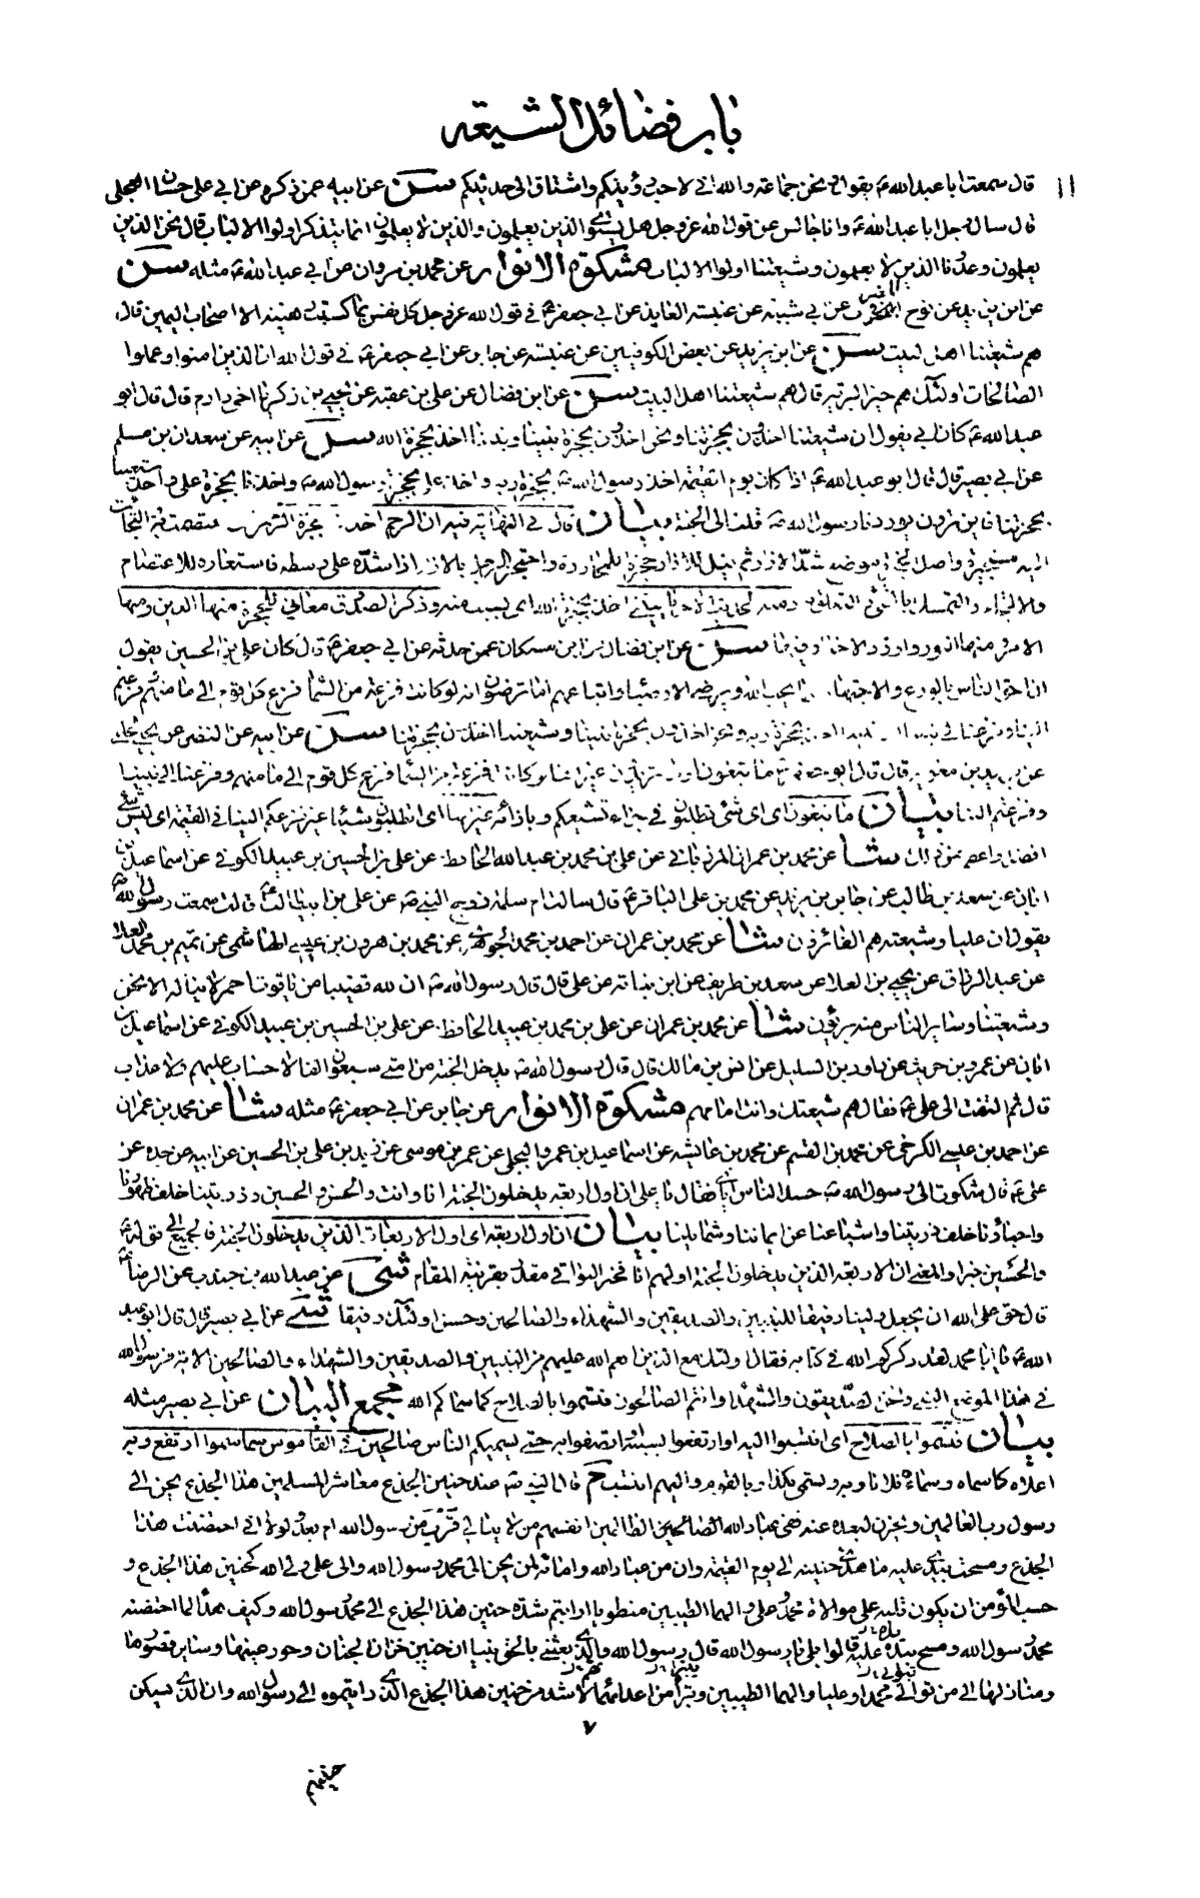 باب فضائل الشيعة
١١ قال سمعت ابا عبد الله ع يقول نحن جماعته والله اني لاحب رؤيتكم واشتاق الى حديثكم سن عن ابيه عمن ذكره عن ابي علي حسان العجلي
قال سال رجل ابا عبد الله ع وانا جالس عن قول الله عز وجل هل يستوي الذين يعلمون والذين لا يعلمون انما يتذكر اولوا الالباب قال نحن الذين
يعلمون وعدونا الذين لا يعلمون وشيعتنا اولوا الالباب مشكوة الانوار عن محمد بن مروان عن ابي عبد الله ع مثله سن
عن ابن يزيد عن نوح المضروب عن ابي شيبة عن عنبسة العابد عن ابي جعفر ع في قول الله عز وجل كل نفس بما كسبت رهينة الا اصحاب اليمين قال
هم شيعتنا اهل البيت سن عن ابن يزيد عن بعض الكوفيين عن عنبسة عن جابر عن ابي جعفر ع في قول الله ان الذين امنوا وعملوا
الصالحات اولئك هم خير البرية قال هم شيعتنا اهل البيت سن عن ابن فضال عن علي بن عقبة عن يحيى بن زكريا اخي دارم قال قال ابو
عبد الله ع كان ابي يقول ان شيعتنا اخذون بحجزتنا ونحن اخذون بحجزة نبينا ونبينا اخذ بحجزة الله سن عن ابيه عن سعدان بن مسلم
عن ابي بصير قال قال ابو عبد الله ع اذا كان يوم القيمة اخذ رسول الله ص بحجزة ربه واخذ علي بحجزة رسول الله ص واخذنا بحجزة علي ع واخذ شيعتنا
بحجزتنا فاين ترون يوردنا رسول الله ص قلت الى الجنة بيان قال في النهاية فيه ان الرحم اخذت بحجزة الرحمن اي اعتصمت به والتجات
اليه مستجيرة واصل الحجزة موضع شد الازار ثم قيل للازار حجزة للمجاورة واحتجز الرجل بالازار اذا شده على وسطه فاستعاره للاعتصام
والالتجاء والتمسك بالشيء والتعلق به ومنه الحديث الاخر يا ليتني اخذ بحجزة الله اي بسبب منه وذكر الصدوق معاني للحجزة منها الدين ومنها
الامر ومنها النور واورد الاخبار فيها سن عن ابن فضال عن ابن مسكان عمن حدثه عن ابي جعفر ع قال كان علي بن الحسين يقول
ان احق الناس بالورع والاجتهاد فيما يحب الله ويرضى الاوصياء واتباعهم اما ترضون انه لو كانت فزعة من السماء فزع كل قوم الى مامنهم وفزعتم
الينا وفزعنا الى نبينا ان نبينا اخذ بحجزة ربه ونحن اخذون بحجزة نبينا وشيعتنا اخذون بحجزتنا سن عن ابيه عن النضر عن يحيى الحلبي
عن بريد بن معوية قال قال ابو جعفر ع ما تبغون او ما تريدون غير انها لو كانت فزعة من السماء فزع كل قوم الى مامنهم وفزعنا الى نبينا
وفزعتم الينا بيان ما تبغون اي اي شيء تطلبون في جزاء تشيعكم وبازائه غيرها اي اتطلبون شيئا غير فزعكم الينا في القيمة اي ليس شيء
افضل واعظم من ذلك شا عن محمد بن عمران المرزباني عن علي بن محمد بن عبد الله الحافظ عن علي بن الحسين بن عبيد الكوفي عن اسماعيل بن
ابان عن سعد بن طالب عن جابر بن يزيد عن محمد بن علي الباقر ع قال سالت ام سلمة زوج النبي ص عن علي بن ابي طالب ع قالت سمعت رسول الله ص
يقول ان عليا وشيعته هم الفائزون شا عن محمد بن عمران عن احمد بن محمد الجوهري عن محمد بن هرون بن عيسى الهاشمي عن تميم بن محمد العلا
عن عبد الرزاق عن يحيى بن العلا عن سعد بن طريف عن ابن نباتة عن علي قال قال رسول الله ص ان لله قضيبا من ياقوت احمر لا يناله الا نحن
وشيعتنا وساير الناس منه بريئون شا عن محمد بن عمران عن علي بن محمد بن عبيد الحافظ عن علي بن الحسين بن عبيد الكوفي عن اسماعيل بن
ابان عن عمرو بن حريث عن داود بن السليل عن انس بن مالك قال قال رسول الله ص يدخل الجنة من امتي سبعون الفا لا حساب عليهم ولا عذاب
قال ثم التفت الى علي ع فقال هم شيعتك وانت امامهم مشكوة الانوار عن جابر عن ابي جعفر ع مثله شا عن محمد بن عمران
عن احمد بن عيسى الكرخي عن محمد بن القسم عن محمد بن عايشة عن اسماعيل بن عمرو البجلي عن عمر بن موسى عن زيد بن علي بن الحسين عن ابيه عن جده عن
علي ع قال شكوت الى رسول الله ص حسد الناس اياي فقال يا علي ان اول اربعة يدخلون الجنة انا وانت والحسن والحسين وذريتنا خلف ظهورنا
واحباؤنا خلف ذريتنا واشياعنا عن ايماننا وشمايلنا بيان ان اول اربعة اي اول الاربعات الذين يدخلون الجنة فالجميع الى قوله
والحسين خبر او المعنى ان الاربعة الذين يدخلون الجنة اولهم انا فخبر البواقي مقدر بقرينة المقام شى عن عبد الله بن جندب عن الرضا ع
قال حق على الله ان يجعل ولينا رفيقا للنبيين والصديقين والشهداء والصالحين وحسن اولئك رفيقا شى عن ابي بصير قال قال ابو عبد
الله ع يا ابا محمد لقد ذكركم الله في كتابه فقال اولئك مع الذين انعم الله عليهم من النبيين والصديقين والشهداء والصالحين الاية فرسول الله
في هذا الموضع النبي ونحن الصديقون والشهداء وانتم الصالحون فتسموا بالصلاح كما سماكم الله مجمع البيان عن ابي بصير مثله
بيان فتسموا بالصلاح اي انتسبوا اليه او ارتفعوا بسببه او اتصفوا به حتى يسميكم الناس صالحين في القاموس سما سموا ارتفع وبه
اعلاه كاسماه وسماه فلانا وبه وتسمى بكذا وبالقوم واليهم انتسب م قال النبي ص عند حنين الجذع معاشر المسلمين هذا الجذع يحن الى
رسول رب العالمين ويحزن لبعده عنه ففي عباد الله الظالمين انفسهم من لا يبالي قرب من رسول الله ام بعد لولا اني احتضنت هذا
الجذع ومسحت بيدي عليه ما هدء حنينه الى يوم القيمة وان من عباد الله وامائه لمن يحن الى محمد رسول الله والى علي ولي الله كحنين هذا الجذع و
حسب المؤمن ان يكون قلبه على موالاة محمد وعلي والهما الطيبين منطويا ارايتم شدة حنين هذا الجذع الى محمد رسول الله وكيف هدأ لما احتضنه
محمد رسول الله ومسح بيده عليه قالوا بلى يا رسول الله قال رسول الله والذي بعثني بالحق نبيا ان حنين خزان الجنان وحور عينها وساير قصورها
ومنازلها الى من توالى محمدا وعليا والهما الطيبين وتبرأ من اعدائهما لاشد من حنين هذا الجذع الذي رايتموه الى رسول الله وان الذي يسكن
٧
حنينهم